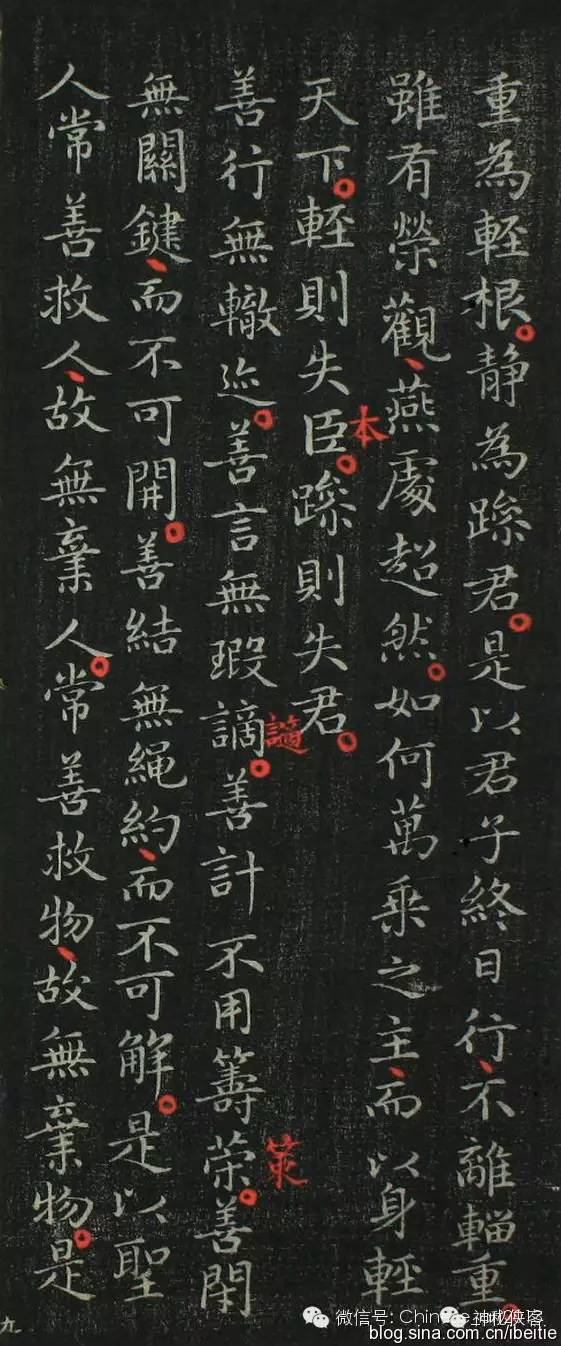 重為輕根。静為躁君。是以君子終日行、不離輜重。
雖有榮觀、燕處超然。如何萬乘之主、而以身輕
本
天下。輕則失臣。躁則失君。
謫
筞
善行無轍迹。善言無瑕謫。善計不用籌荣。善閇
無關鍵、而不可開。善結無繩約、而不可解。是以聖
人常善救人、故無棄人。常善救物、故無棄物。是
九
微信号: Chinese 神秘侠客
blog.sina.com.cn/ibeitie